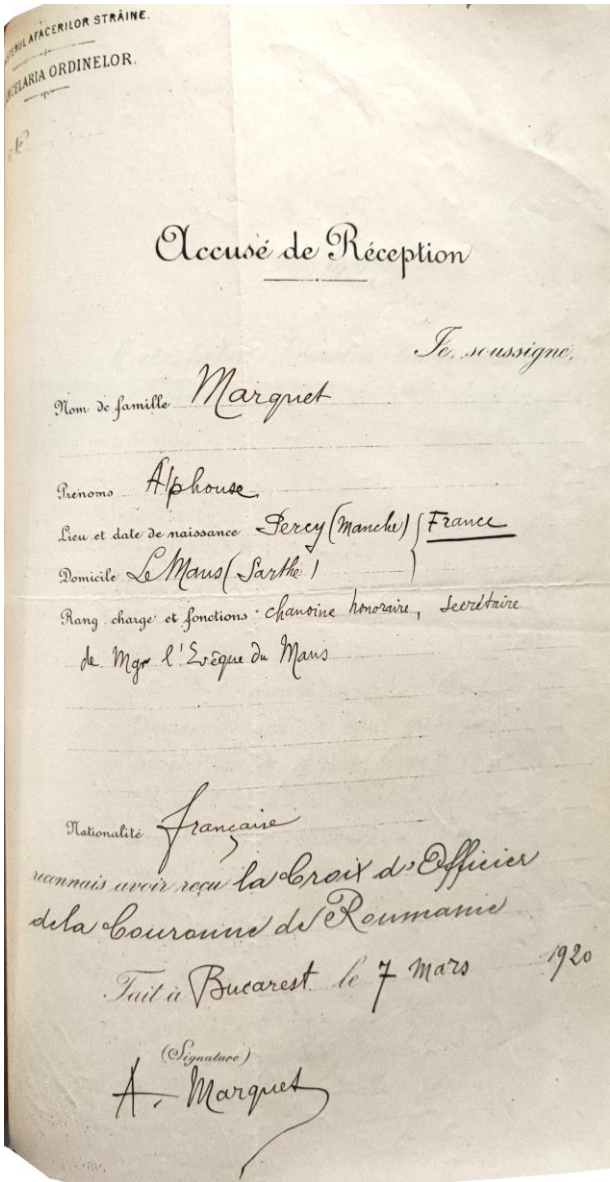 AFACERILOR STRĂINE.
ORDINELOR.
Accusé de Réception
Je, soussigné,
Nom de famille Marquet
Prénoms Alphonse
Lieu et date de naissance Percy (Manche) France
Domicile Le Mans (Sarthe)
Rang, charge et fonctions chanoine honoraire, secrétaire
de Mgr l'Evêque du Mans
Nationalité française
reconnais avoir reçu la Croix d'Officier
de la Couronne de Roumanie
Fait à Bucarest le 7 Mars 1920
(Signature)
A. Marquet